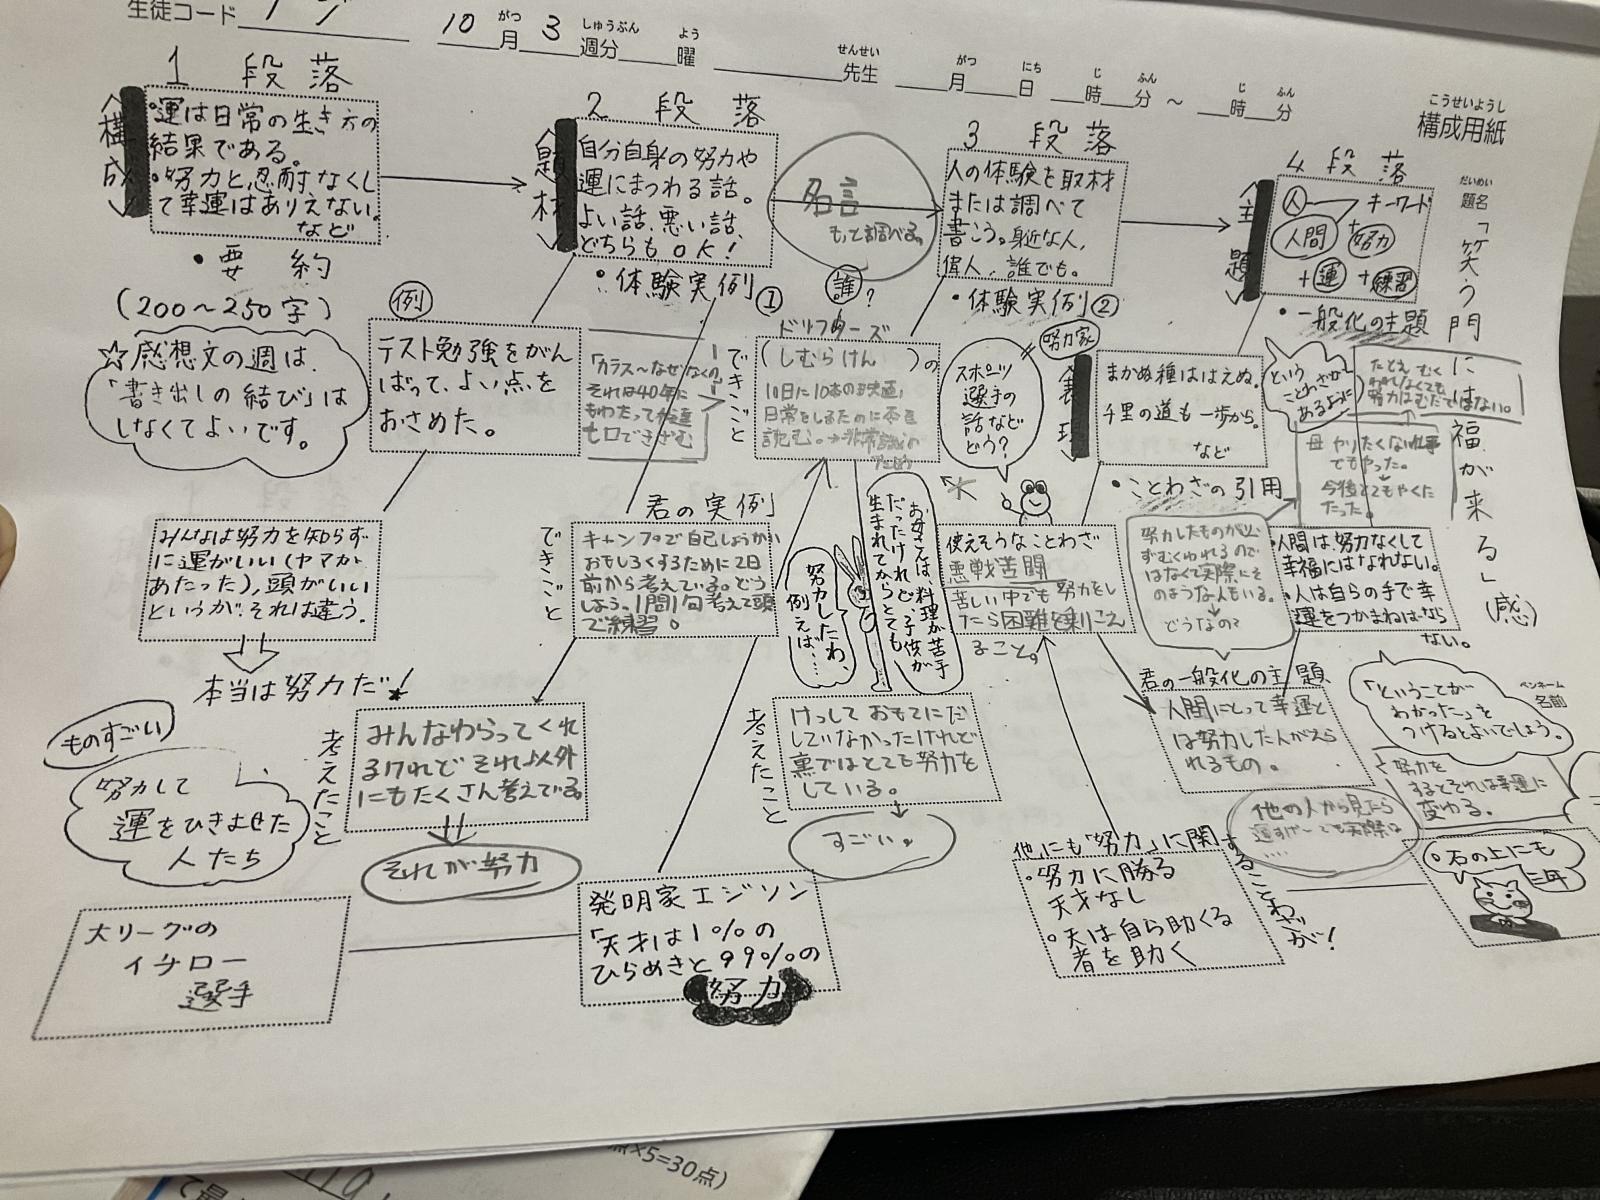 生徒コード
10月3週分 曜 先生 月 日 時 分 ~ 時 分
がつ しゅうぶん よう せんせい がつ にち じ ふん じ ふん
こうせいようし
構成用紙
だいめい
題名「笑う門には福が来る」(感)
ペンネーム
名前
1 段落
<構成>
・運は日常の生き方の
結果である。
・努力と忍耐なくし
て幸運はありえない。
など
・要約
(200〜250字)
☆感想文の週は、
「書き出しの結び」は
しなくてよいです。
2 段落
<題材>
自分自身の努力や
運にまつわる話。
よい話、悪い話、
どちらもOK!
・体験実例①
例
テスト勉強をがん
ばって、よい点を
おさめた。
みんなは努力を知らず
に運がいい(ヤマが
あたった)、頭がいい
というが、それは違う。
本当は努力だ!
「カラス〜なぜなくの」
それは40年に
もわたって
君の実例
できごと
キャンプで自己しょうかい
おもしろくするために2日
前から考えている。どう
しよう。1問1句考えて頭
で練習。
考えたこと
みんなわらってくれ
るけれど それ以外
にもたくさん考えている。
それが努力
ものすごい
努力して
運をひきよせた
人たち
大リーグの
イチロー
選手
発明家エジソン
「天才は1%の
ひらめきと99%の
努力
名言
もっと調べる。
3 段落
人の体験を取材
または調べて
書こう。身近な人、
偉人、誰でも。
・体験実例②
誰?
できごと
ドリフターズ
(しむらけん)の
10日に10本の映画、
日常をしるために本を
読む。
スポーツ
選手の
話など
どう?
努力家
お母さんは、料理が苦手
だったけれど、子供が
生まれてからとても
努力したわ、
例えば、…
考えたこと
けっして おもてにだ
していなかったけれど
裏ではとても努力を
している。
すごい。
4 段落
<主題>
キーワード
人
人間+努力
+運+練習
・一般化の主題
<表現>
まかぬ種ははえぬ。
千里の道も一歩から。
など
・ことわざの引用
という
ことわざが
あるように
たとえ むく
われなくても
努力はむだではない。
母 やりたくない仕事
でもやった。
今後とてもやくに
たった。
使えそうなことわざ
悪戦苦闘
苦しい中でも 努力をし
たら困難を乗りこえ
ること。
努力したものが必
ずむくわれるので
はなくて実際にそ
のような人もいる。
どうなの?
・人間は、努力なくして
幸福にはなれない。
・人は自らの手で幸
運をつかまねばなら
ない。
君の一般化の主題
人間にとって幸運と
は努力した人がえら
れるもの。
「ということが
わかった」を
つけるとよいでしょう。
努力を
するとそれは幸運に
変わる。
他の人から見たら
運すげー でも実際は
....
他にも「努力」に関することわざが!
・努力に勝る
天才なし
・天は自ら助くる
者を助く
・石の上にも
三年
点×5=30点)